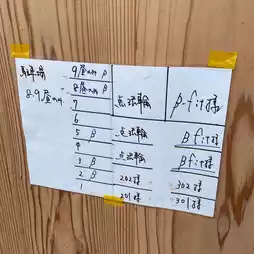 駐車場
8.9屋根付
9屋根付 β
8屋根付 β
7
6
5 β
4
3 β
2 β
1
点検輪
点検輪
点検輪
202様
201様
β-fit様
βfit様
βfit様
302様
301様